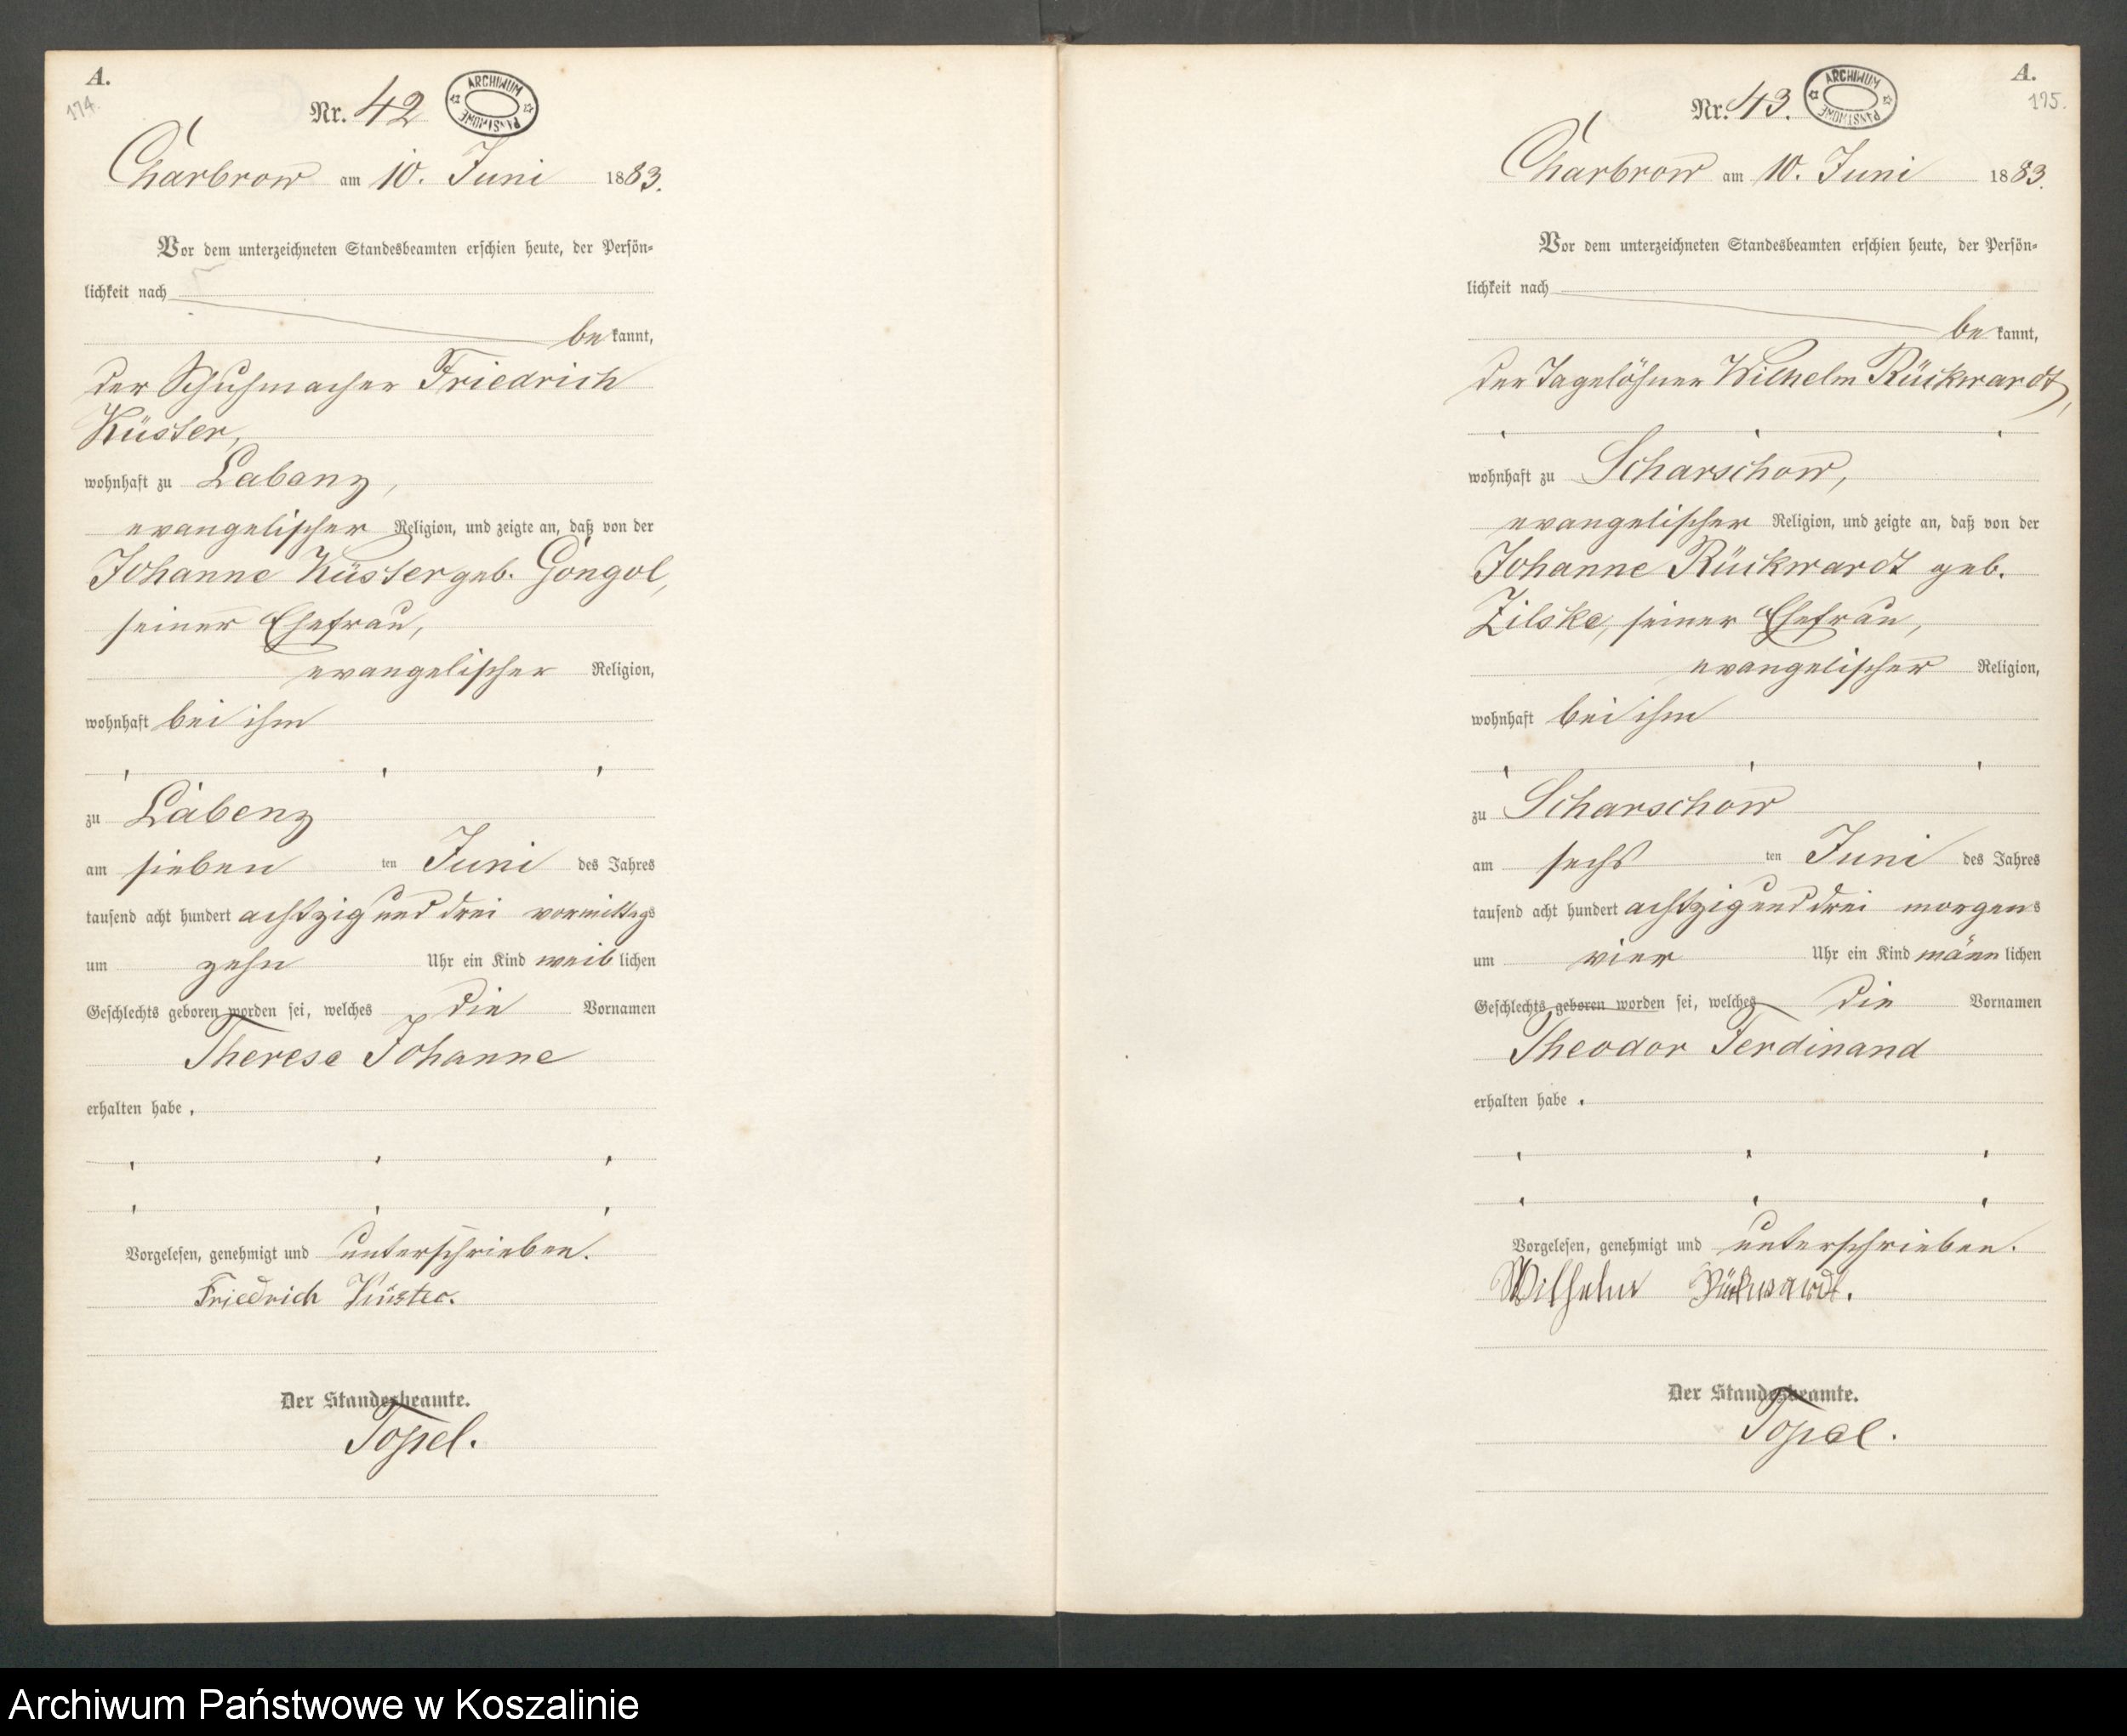 A.
174.
Nr. 42
ARCHIWUM PAŃSTWOWE
Charbrow am 10. Juni 1883.
Vor dem unterzeichneten Standesbeamten erschien heute, der Persön-
lichkeit nach
be kannt,
der Schuhmacher Friedrich
Küster,
wohnhaft zu Labenz,
evangelischer Religion, und zeigte an, daß von der
Johanne Küster geb. Gongol,
seiner Ehefrau,
evangelischer Religion,
wohnhaft bei ihm
zu Labenz
am sieben ten Juni des Jahres
tausend acht hundert achtzig und drei vormittags
um zehn Uhr ein Kind weib lichen
Geschlechts geboren worden sei, welches die Vornamen
Therese Johanne
erhalten habe.
Vorgelesen, genehmigt und unterschrieben.
Friedrich Küster.
Der Standesbeamte.
Topel.
A.
175.
Nr. 43.
ARCHIWUM PAŃSTWOWE
Charbrow am 10. Juni 1883.
Vor dem unterzeichneten Standesbeamten erschien heute, der Persön-
lichkeit nach
be kannt,
der Tagelöhner Wilhelm Rückwardt,
wohnhaft zu Scharschow,
evangelischer Religion, und zeigte an, daß von der
Johanne Rückwardt geb.
Zilske, seiner Ehefrau,
evangelischer Religion,
wohnhaft bei ihm
zu Scharschow
am sechs ten Juni des Jahres
tausend acht hundert achtzig und drei morgens
um vier Uhr ein Kind männ lichen
Geschlechts geboren worden sei, welches die Vornamen
Theodor Ferdinand
erhalten habe.
Vorgelesen, genehmigt und unterschrieben.
Wilhelm Rückwardt.
Der Standesbeamte.
Topel.
Archiwum Państwowe w Koszalinie